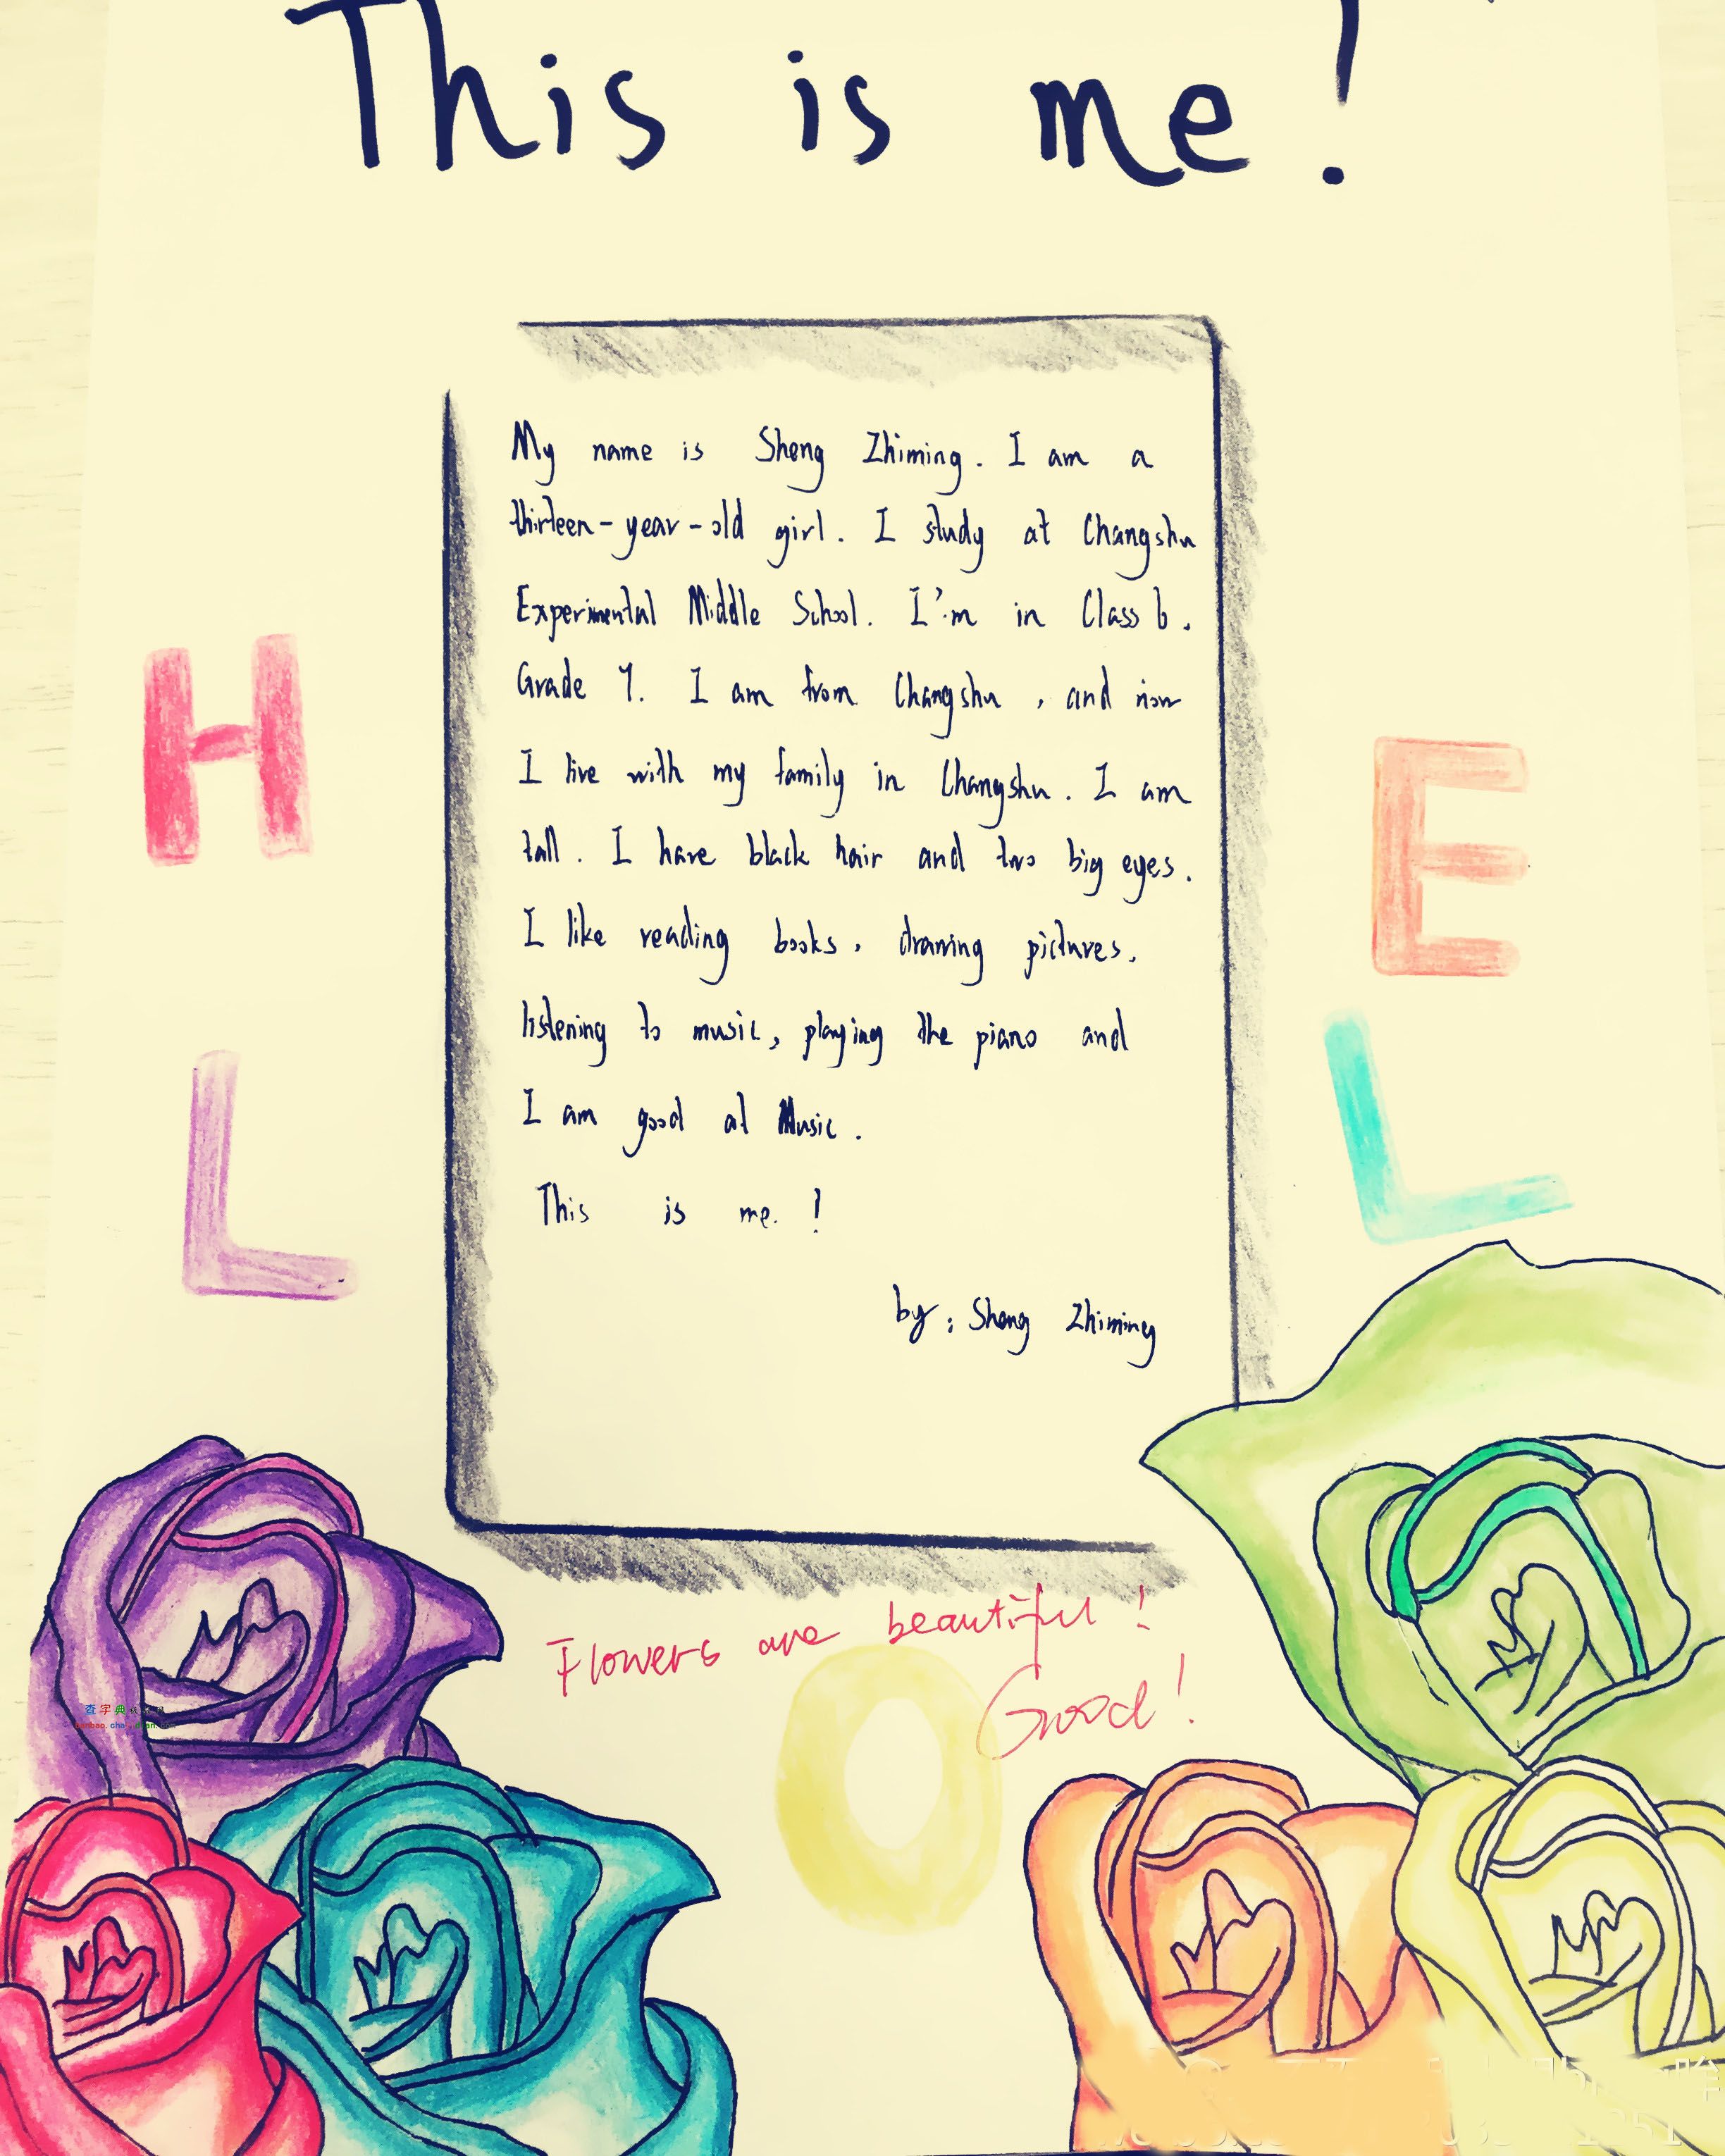 This is me!
My name is Sheng Zhiming. I am a
thirteen-year-old girl. I study at Changshu
Experimental Middle School. I'm in Class 6,
Grade 7. I am from Changshu, and now
I live with my family in Changshu. I am
tall. I have black hair and two big eyes.
I like reading books, drawing pictures,
listening to music, playing the piano and
I am good at Music.
This is me!
by: Sheng Zhiming
H
E
L
L
O
Flowers are beautiful!
Good!
查字典